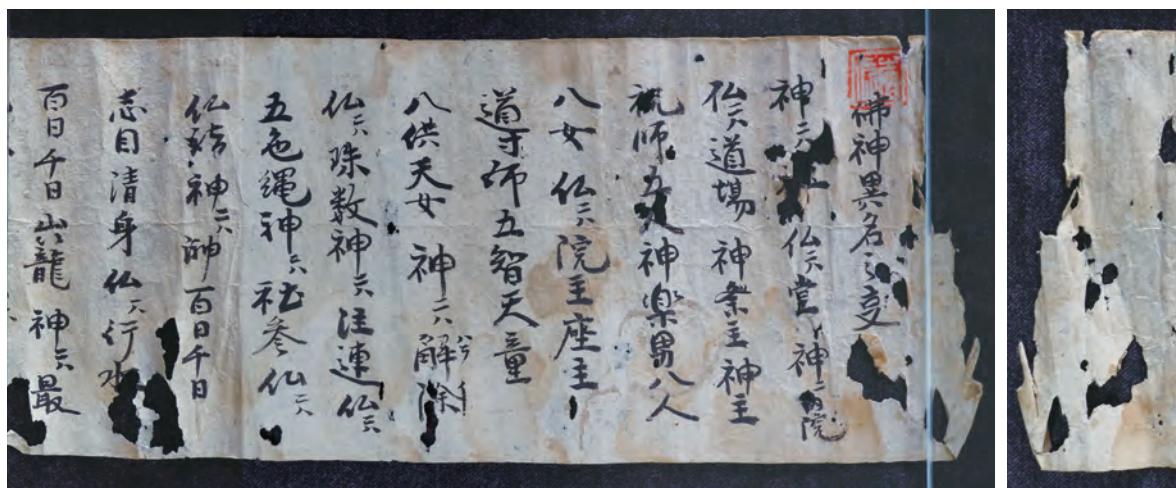 佛神異名之事
神ニハ社仏ニハ堂神ニハ院
仏ニハ道場神ニハ祭主神主
祝師五人神楽男八人
八女仏ニハ院主座主
導師五智天童
八供天女神ニハ解除ハラヘ
仏ニハ珠数神ニハ注連仏ニハ
五色縄神ニハ社参仏ニハ
仏詣神ニハ 百日千日
忌日清身仏ニハ行水
百日千日山籠神ニハ最